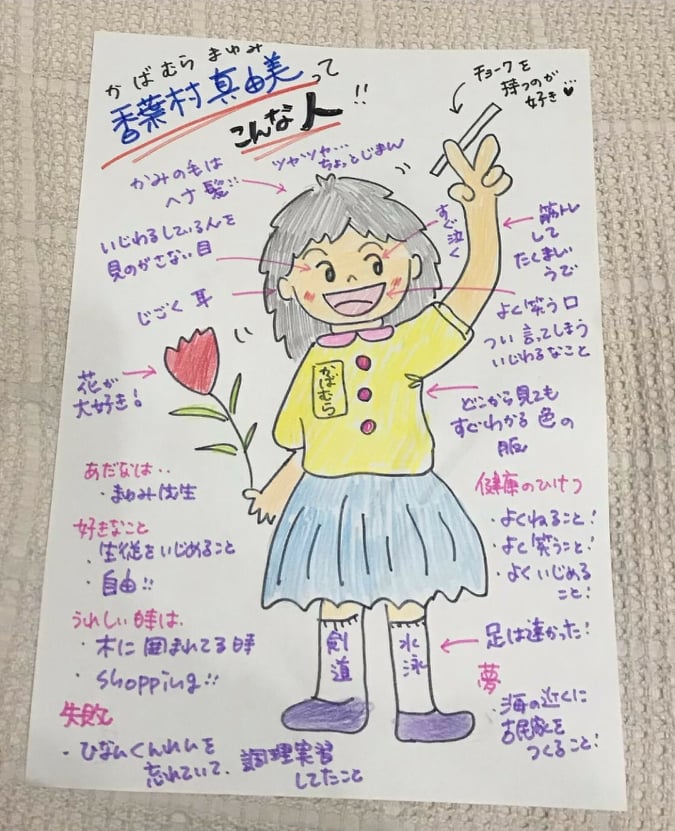 かばむら まゆみ
香葉村真由美って
こんな人!!
チョークを
持つのが…
好き♥
かみの毛は
ヘナ髪!!
ツヤツヤ…
ちょっとじまん
いじわるしている人を
見のがさない目
すぐ泣く
筋トレ
して
たくましい
うで
じごく耳
よく笑う口
つい言ってしまう
いじわるなこと
花が
大好き!
かばむら
どこから見ても
すぐわかる色の
服
あだなは‥
・まゆみ先生
好きなこと
・生徒をいじめること
・自由!!
うれしい時は、
・木に囲まれてる時
・shopping!!
失敗
・ひなんくんれんを
忘れていて、調理実習
してたこと
健康のひけつ
・よくねること!
・よく笑うこと!
・よくいじめる
こと!
剣道
水泳
足は速かった!
夢
・海の近くに
古民家を
つくること!